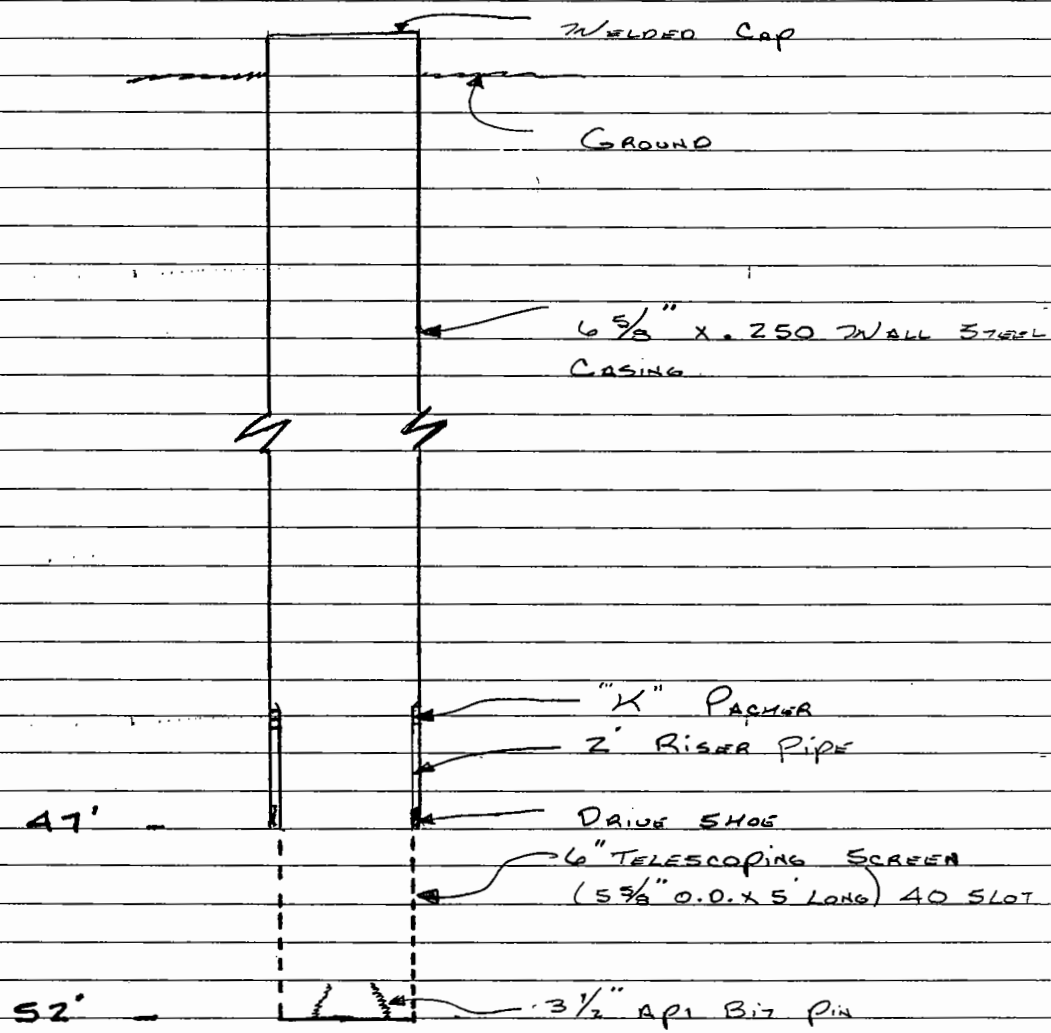 WELDED CAP
GROUND
6 5/8" X .250 WALL STEEL
CASING
"K" PACKER
2' RISER PIPE
47' -
DRIVE SHOE
6" TELESCOPING SCREEN
(5 5/8" O.D. X 5' LONG) 40 SLOT
52' -
3 1/2" API BIT PIN